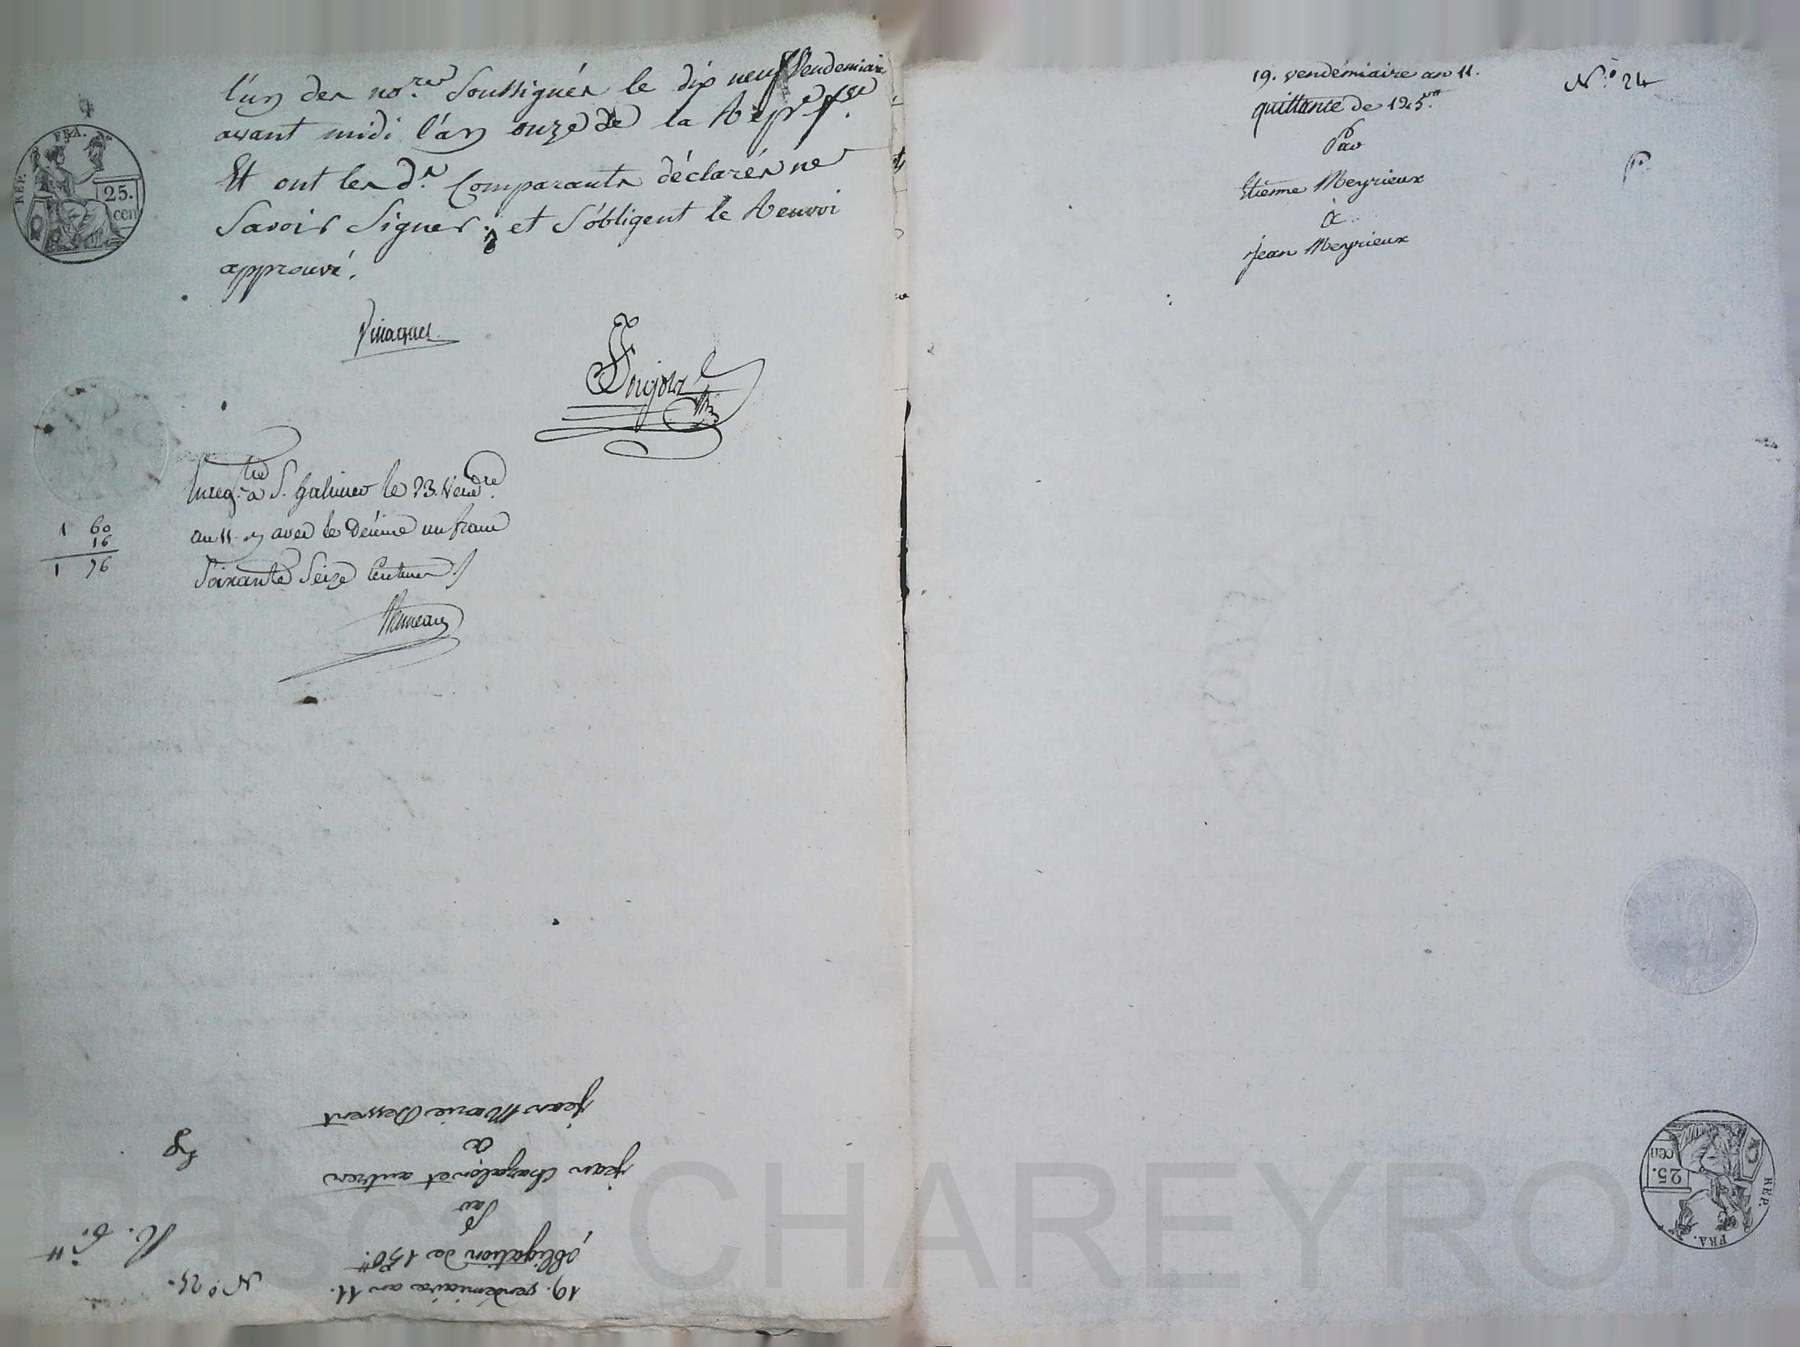 l'un des no.res Soussignés le dix neuf Vendemiaire
avant midi l'an onze de la Rép.e f.se
Et ont les d.s Comparants déclarés ne
Savoir Signer, et S'obligent le Renvoi
approuvé.
REP. FRA.
25.
cen
Enreg.tré à S. Galmier le 23. Vend.re
an 11. avec le Décime un franc
Soixante Seize Centimes
1 60
16
1 76
19. vendémiaire an 11.
N.o 24
quittance de 125.tt
Par
Etienne Meyrieux
à
jean Meyrieux
19. vendémiaire an 11.
N.o 25.
obligation de 150.tt
Par
jean Chazalon et autres
à
jean Marie Dessert
REP. FRA.
25.
cen
Pascal CHAREYRON